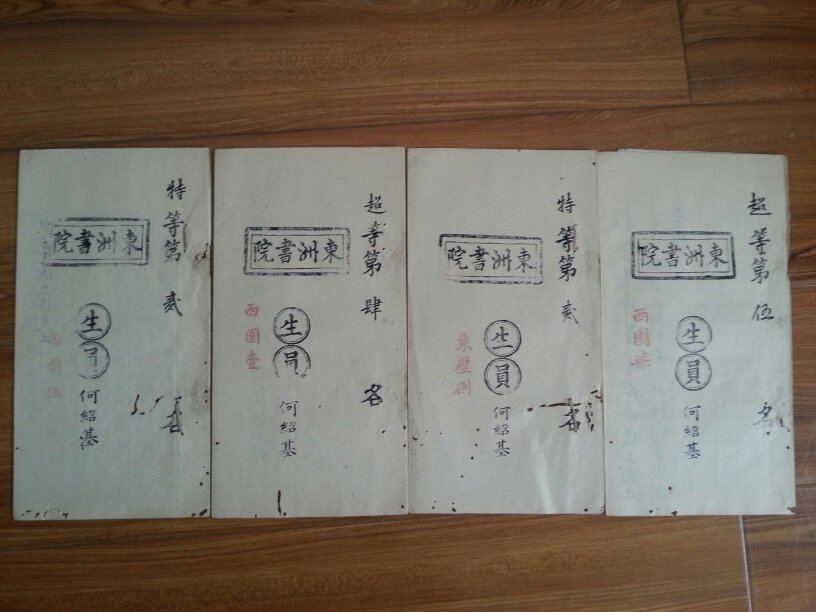 超等第伍名
東洲書院
生員何紹基
西園柒
特等第貳名
東洲書院
生員何紹基
東壁捌
超等第肆名
東洲書院
生員何紹基
西園壹
特等第貳名
東洲書院
生員何紹基
西園伍